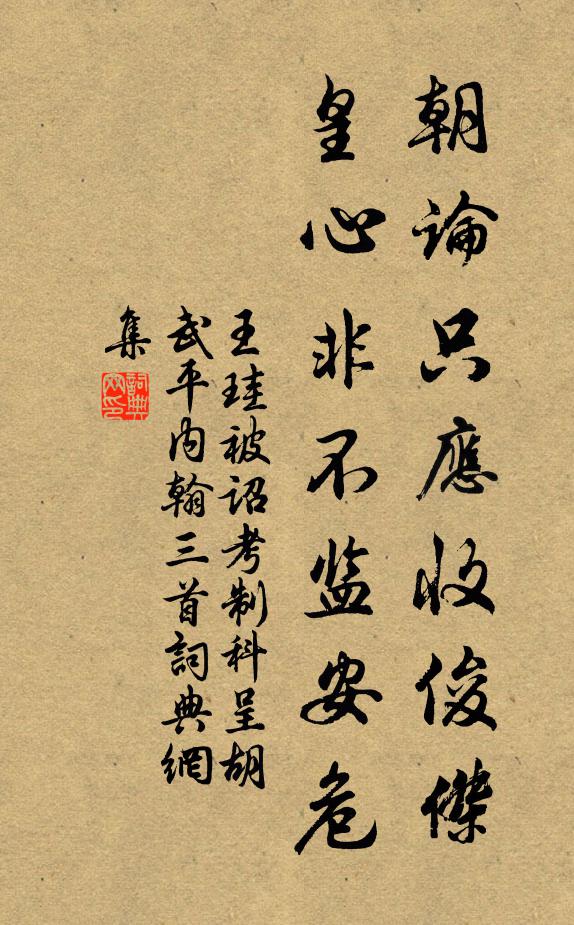 朝論只應收俊傑
皇心非不監安危
王珪被詔考制科呈胡
武平內翰三首詞典網
集
詞典網印